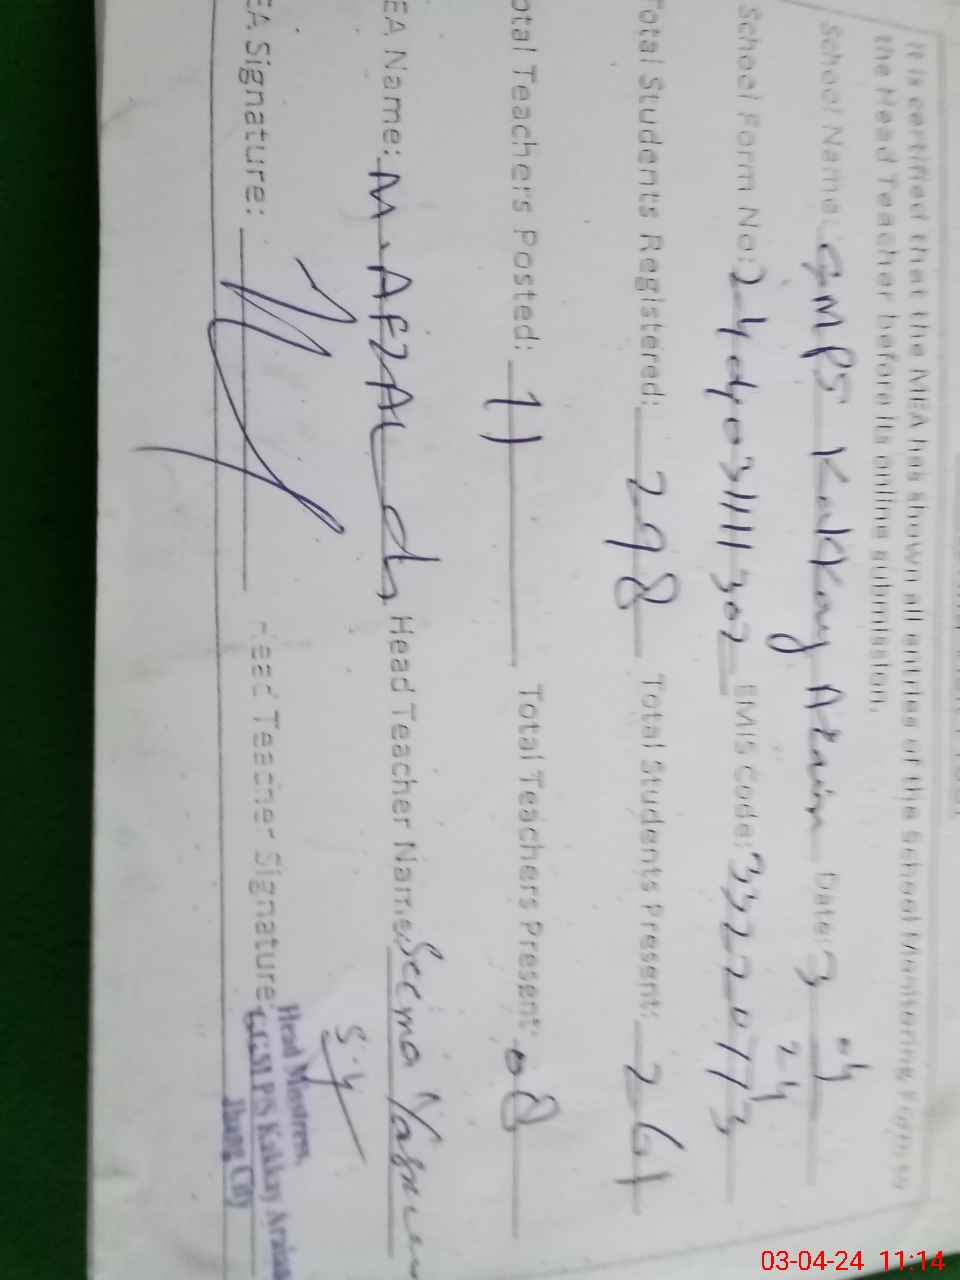 It is certified that the MEA has shown all entries of the School Monitoring Form to
the Head Teacher before its online submission.
School Name: GMPS Kakkay Arain Date: 3 04 24
School Form No: EMIS Code: 33220173
Total Students Registered: 298 Total Students Present: 261
otal Teachers Posted: 11 Total Teachers Present: 08
EA Name: M. AFZAL Head Teacher Name: Seema
EA Signature: Head Teacher Signature:
Head Mistress,
Kakkay Araian
Jhang
03-04-24 11:14